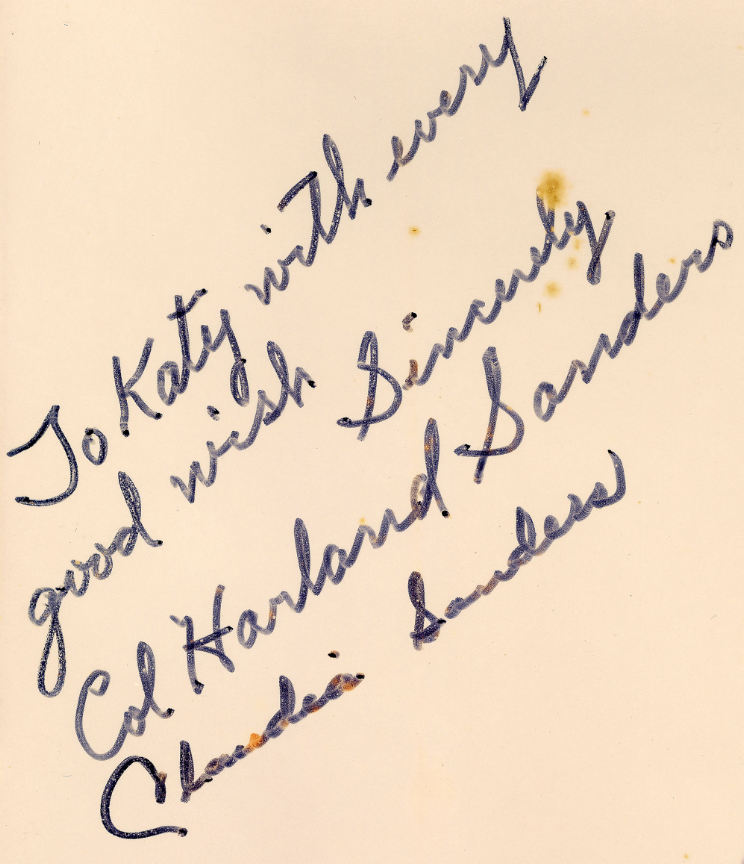 To Katy with every
good wish Sincerely
Col Harland Sanders
Claudia Sanders